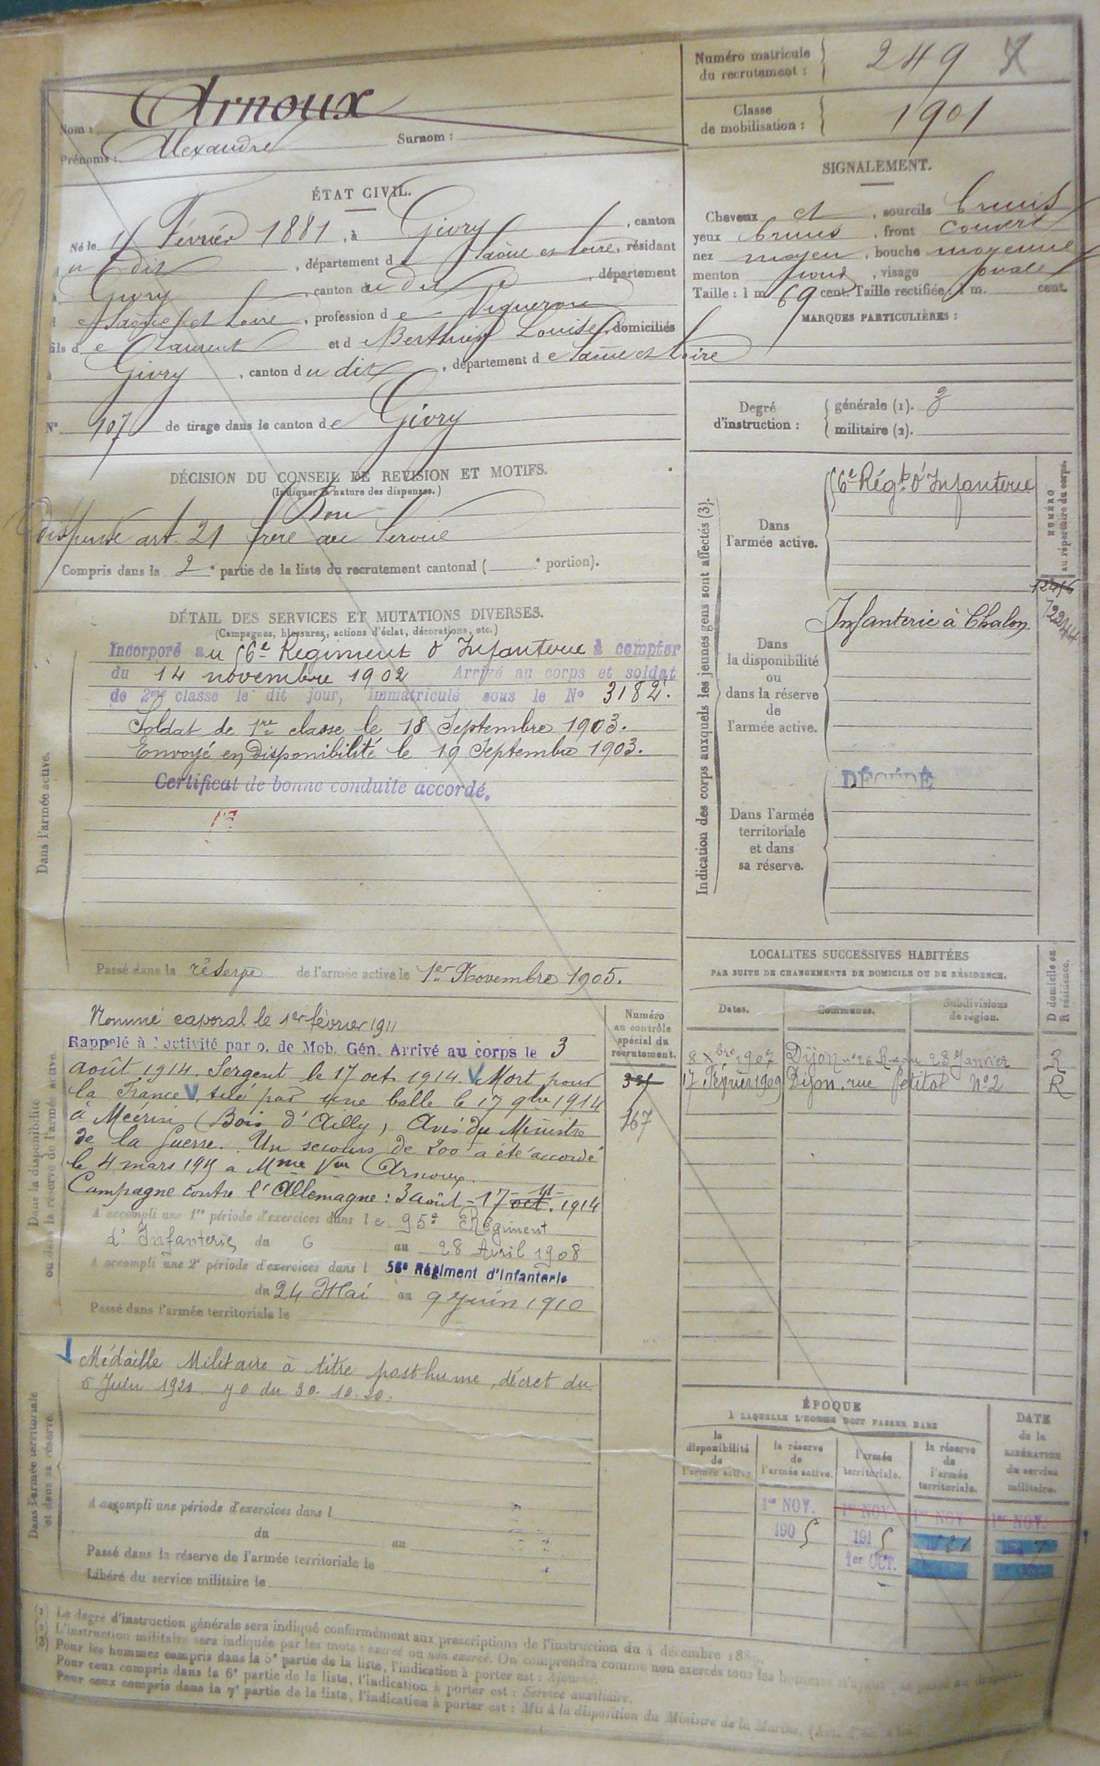 Numéro matricule du recrutement : 249
Classe de mobilisation : 1901
Nom : Arnoux
Prénoms : Alexandre Surnom :
ÉTAT CIVIL.
Né le 4 Février 1881, à Givry, canton
du dit, département de Saône et Loire, résidant
à Givry, canton du dit, département
de Saône et Loire, profession de Vigneron
fils de Laurent et de Berthier Louise, domiciliés
à Givry, canton du dit, département de Saône et Loire
N° 107 de tirage dans le canton de Givry
SIGNALEMENT.
Cheveux et, sourcils bruns
yeux bruns, front couvert
nez moyen, bouche moyenne
menton rond, visage ovale
Taille : 1 m. 69 cent. Taille rectifiée 1 m. cent.
MARQUES PARTICULIÈRES :
Degré d'instruction :
générale (1). 3
militaire (2).
DÉCISION DU CONSEIL DE REVISION ET MOTIFS.
(Indiquer la nature des dispenses.)
Bon
Dispensé art. 21 frère au service
Compris dans la 2e partie de la liste du recrutement cantonal ( e portion).
DÉTAIL DES SERVICES ET MUTATIONS DIVERSES.
(Campagnes, blessures, actions d'éclat, décorations, etc.)
Dans l'armée active.
Incorporé au 56e Régiment d'Infanterie à compter
du 14 novembre 1902 Arrivé au corps et soldat
de 2me classe le dit jour, immatriculé sous le N° 3182.
Soldat de 1re classe le 18 Septembre 1903.
Envoyé en disponibilité le 19 Septembre 1903.
Certificat de bonne conduite accordé.
Passé dans la réserve de l'armée active le 1er Novembre 1905.
Indication des corps auxquels les jeunes gens sont affectés (3).
NUMÉRO au répertoire du corps.
Dans l'armée active.
56e Régt d'Infanterie
Dans la disponibilité ou dans la réserve de l'armée active.
Infanterie à Chalon
Dans l'armée territoriale et dans sa réserve.
DÉCÉDÉ
Dans la disponibilité ou dans la réserve de l'armée active.
Numéro au contrôle spécial du recrutement.
167
Nommé caporal le 1er février 1911
Rappelé à l'activité par o. de Mob. Gén. Arrivé au corps le 3
août 1914. Sergent le 17 oct. 1914. Mort pour
la France tué par une balle le 17 9bre 1914
à Mécrin (Bois d'Ailly), Avis du Ministre
de la Guerre. Un secours de 200 a été accordé
le 4 mars 1915 a Mme Vve Arnoux.
Campagne contre l'Allemagne : 3 août - 17 oct. 1914
A accompli une 1re période d'exercices dans le 95e Régiment
d'Infanterie, du 6 au 28 Avril 1908
A accompli une 2e période d'exercices dans l 56e Régiment d'Infanterie
du 24 Mai au 9 Juin 1910
Passé dans l'armée territoriale le
LOCALITÉS SUCCESSIVES HABITÉES
PAR SUITE DE CHANGEMENTS DE DOMICILE OU DE RÉSIDENCE.
Dates. Communes. Subdivisions de région. D domicile ou R résidence.
8 Xbre 1907 Dijon Janvier R
17 Février 1909 Dijon, rue Petitot N°2 R
Dans l'armée territoriale et dans sa réserve.
Médaille Militaire à titre posthume, décret du
A accompli une période d'exercices dans l
du au
Passé dans la réserve de l'armée territoriale le
Libéré du service militaire le
ÉPOQUE
À LAQUELLE L'HOMME DOIT PASSER DANS
la disponibilité de l'armée active. la réserve de l'armée active. l'armée territoriale. la réserve de l'armée territoriale.
DATE de la LIBÉRATION du service militaire.
1er NOV. 1er NOV. 1er NOV. 1er NOV.
1905 1915
1er OCT.
(1) Le degré d'instruction générale sera indiqué conformément aux prescriptions de l'instruction du 4 décembre
(2) L'instruction militaire sera indiquée par les mots : exercé ou non exercé. On comprendra comme non exercés tous les hommes
(3) Pour les hommes compris dans la 5e partie de la liste, l'indication à porter est : Ajourné.
Pour ceux compris dans la 6e partie de la liste, l'indication à porter est : Service auxiliaire.
Pour ceux compris dans la 7e partie de la liste, l'indication à porter est : Mis à la disposition du Ministre de la Marine.